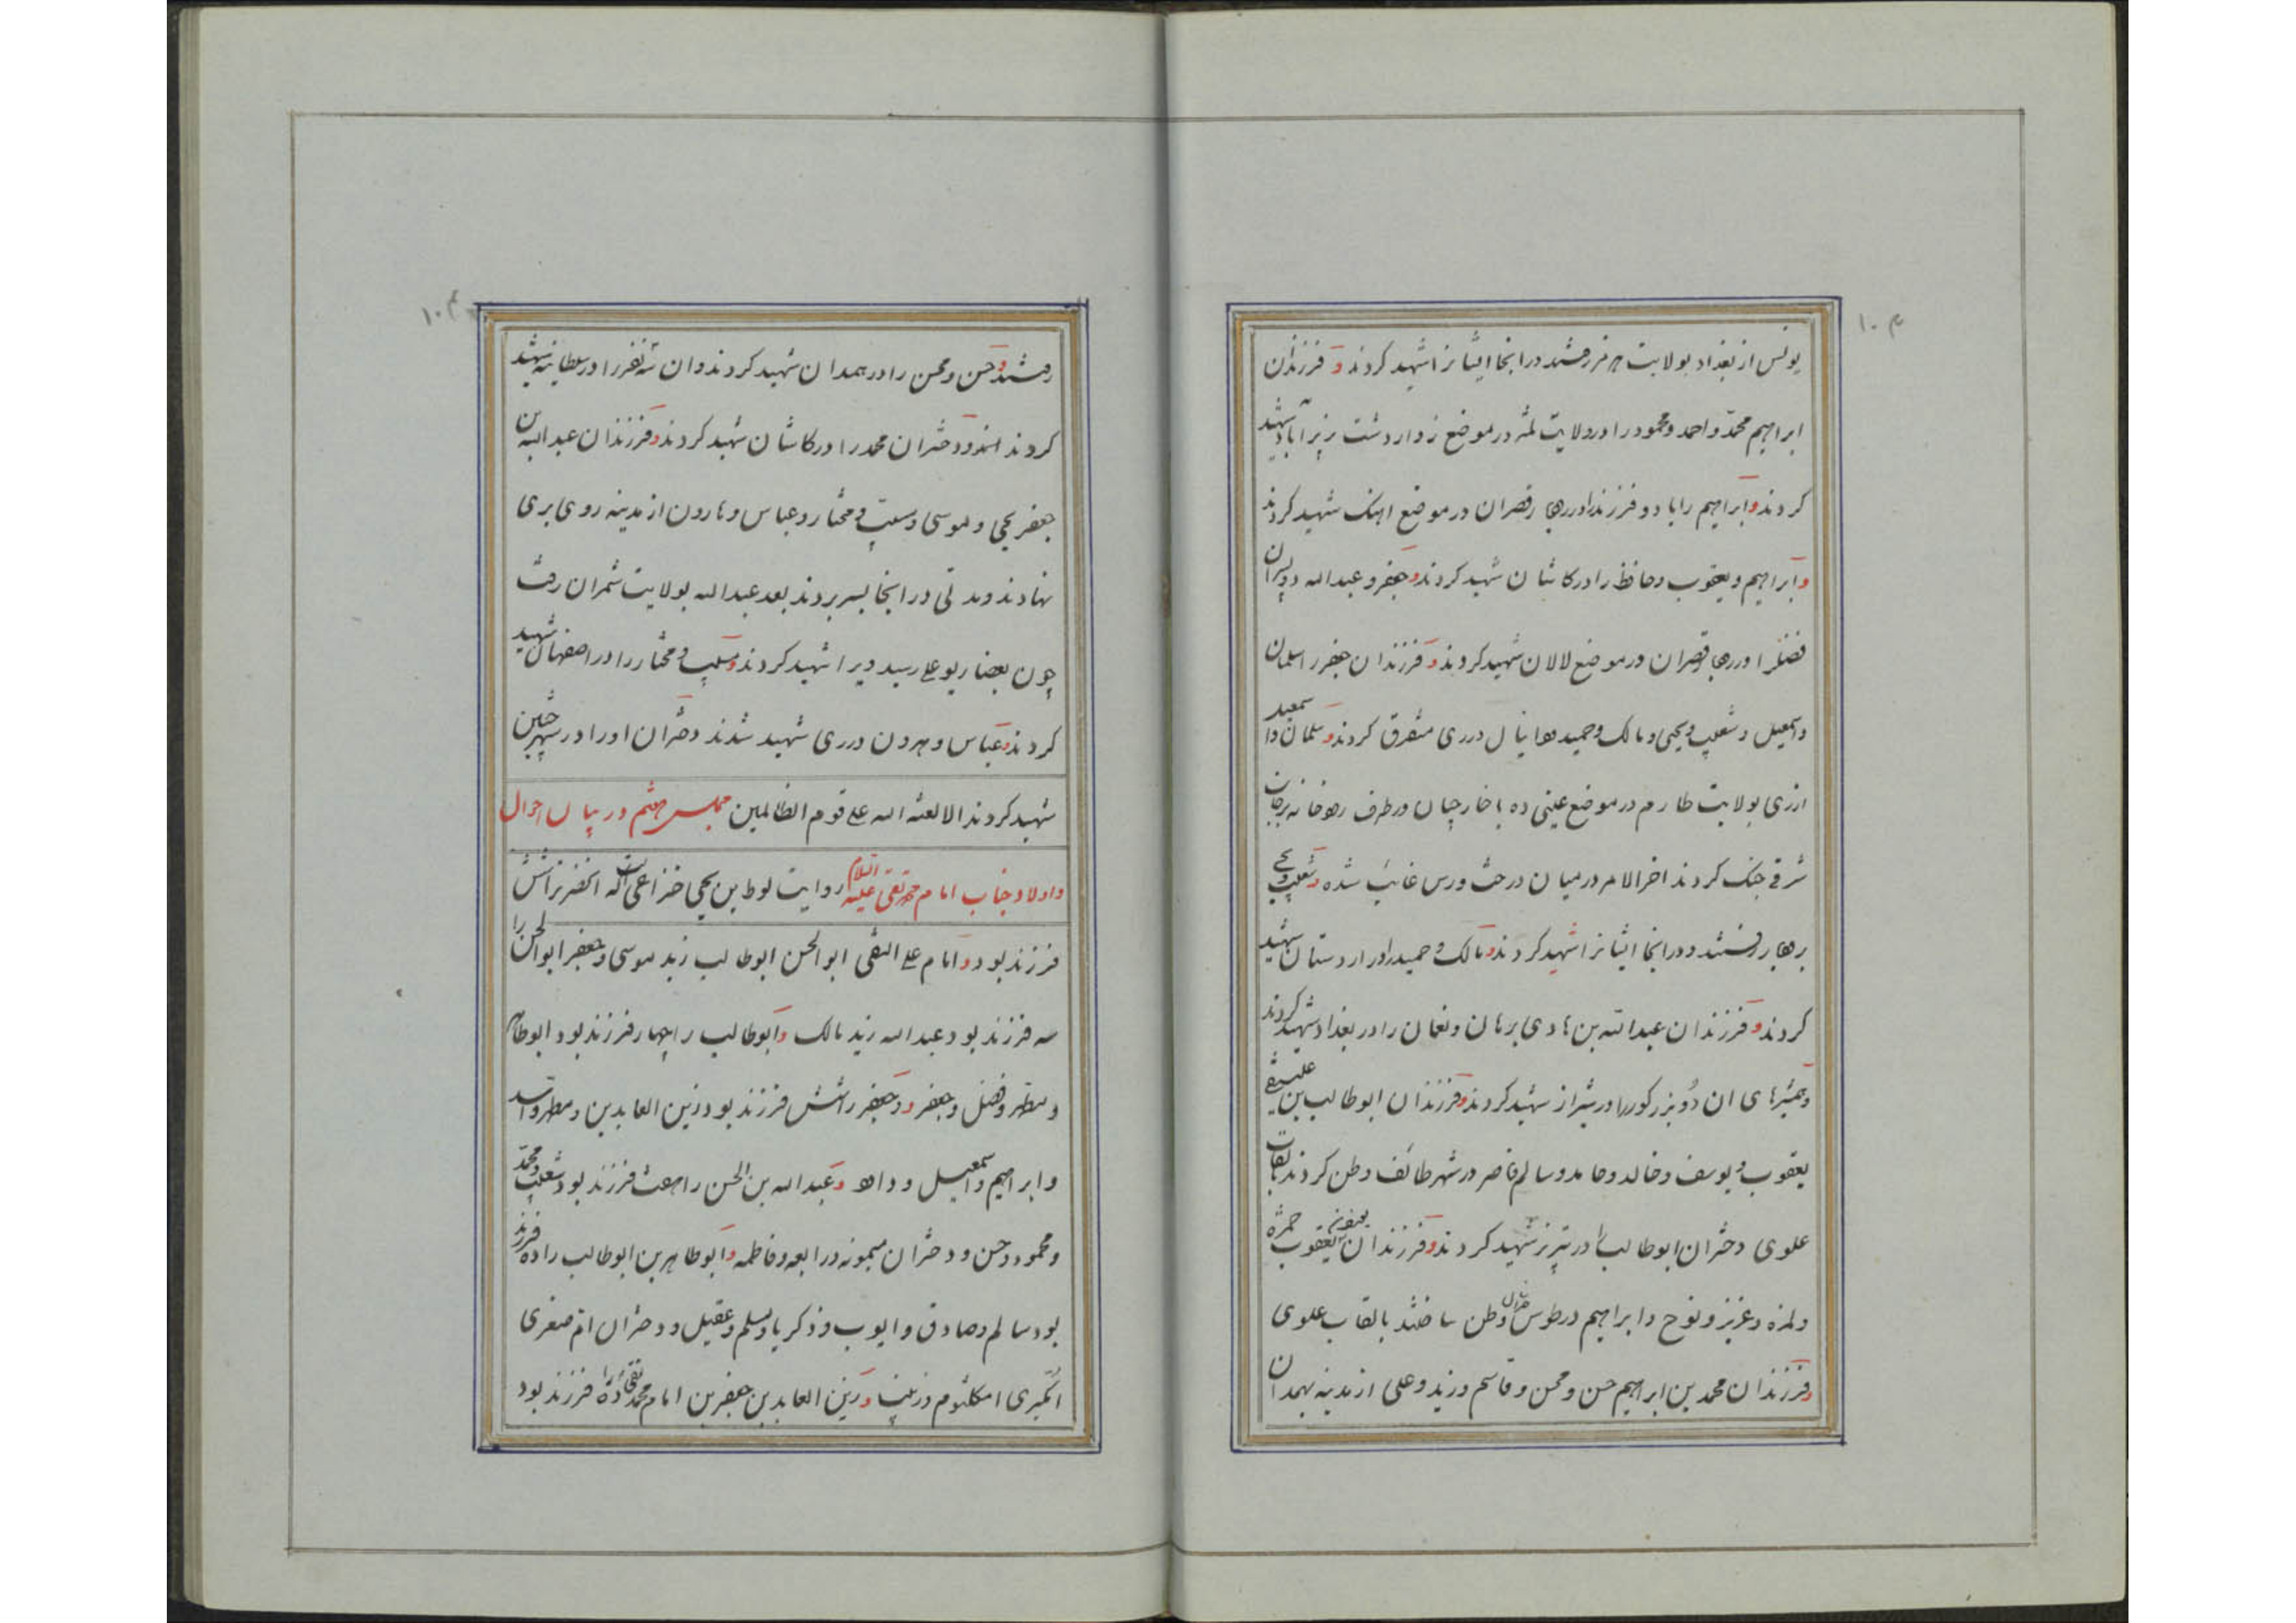 ۱۰۳
یونس از بغداد بولایت رفتند در انجا ایشانرا شهید کردند و فرزندان
ابراهیم محمّد و احمد و محمود را در ولایت در موضع زواردشت شهید
کردند و ابراهیم رابا دو فرزند در قصران در موضع اهنک شهید کردند
و ابراهیم و یعقوب و حافظ را در کاشان شهید کردند و جعفر و عبد الله دو پسران
فضل را در قصران در موضع لالان شهید کردند و فرزندان جعفر سلمان
و اسمعیل و شعیب و یحیی و مالک و حمید در ری متفرق کردند و سلمان و اسمعیل
از ری بولایت طارم در موضع ده در طرف رودخانه
شرقی جنک کردند اخر الامر در میان درخت ورس غائب شده و شعیب و یحیی
رفتند و در انجا ایشانرا شهید کردند و مالک و حمید را در اردستان شهید
کردند و فرزندان عبد الله بن هادی برهان و نعمان را در بغداد شهید کردند
و همشیرهای ان دو بزرکوررا در شیراز شهید کردند و فرزندان ابوطالب بن علی نقی
یعقوب و یوسف و خالد و حامد و سالم ناصر در شهر طائف وطن کردند بالقاب
علوی دختران ابوطالب را در تبریز شهید کردند و فرزندان یعقوب حمزه
و عزیز و نوح و ابراهیم در طوس وطن ساختند بالقاب علوی
و فرزندان محمد بن ابراهیم حسن و محسن و قاسم و زید و علی از مدینه بهمدان
رفتند و حسن و محسن را در همدان شهید کردند و ان سه نفر را در سلطانیه شهید
کردند و دختران محمد را در کاشان شهید کردند و فرزندان عبد الله بن
جعفر یحیی و موسی و شعیب و مختار و عباس و هارون از مدینه روی بری
نهادند و مدتی در انجا بسر بردند بعد عبد الله بولایت شمران رفت
چون رسید ویرا شهید کردند و شعیب و مختار را در اصفهان شهید
کردند و عباس و هرون در ری شهید شدند دختران او را در شهر
شهید کردند الا لعنة الله علی قوم الظالمین مجلس هشتم در بیان احوال
و اولاد جناب امام محمد تقی علیه السلام روایت لوط بن یحیی خزاعی است که انحضرترا شش
فرزند بود و امام علی النقی ابو الحسن ابوطالب زید موسی و جعفر ابو الحسن را
سه فرزند بود عبد الله زید مالک و ابوطالب را چهار فرزند بود ابوطاهر
و مطهر و فضل و جعفر و جعفر را شش فرزند بود زین العابدین و مطهر و اسد
و ابراهیم و اسمعیل و داود و عبد الله بن الحسن را هفت فرزند بود شعیب و محمّد
و محمود و حسن و دختران میمونه و رابعه و فاطمه و ابوطاهر بن ابوطالب را ده فرزند
بود سالم و صادق و ایوب و ذکریا و مسلم و عقیل و دختران ام صغری
ام کبری امکلثوم زینب و زین العابدین جعفر بن امام محمد تقی را ده فرزند بود